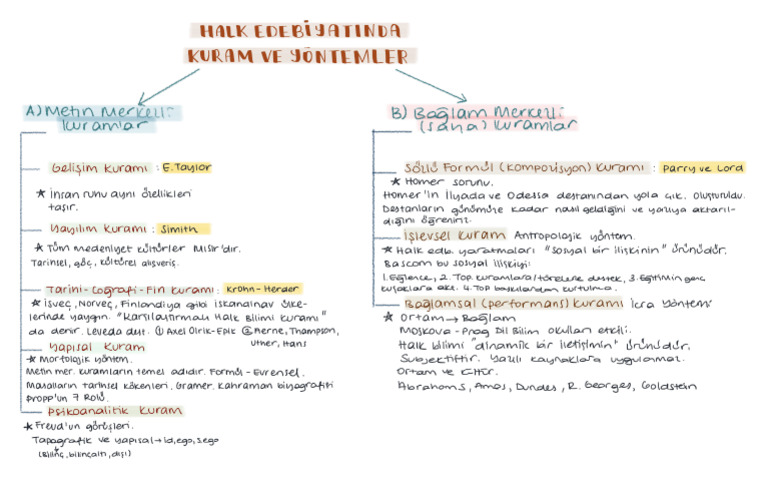 HALK EDEBİYATINDA
KURAM VE YÖNTEMLER
A) Metin Merkezli
Kuramlar
Gelişim Kuramı : E.Taylor
★ İnsan ruhu aynı özellikleri
taşır.
Yayılım Kuramı : Simith
★ Tüm medeniyet kültürler Mısır'dır.
Tarihsel, göç, kültürel alışveriş.
Tarihi-Coğrafi-Fin Kuramı : Krohn-Herder
★ İsveç, Norveç, Finlandiya gibi İskandinav ülke-
lerinde yaygın. "Karşılaştırmalı Halk Bilimi Kuramı"
da denir. ① Axel Olrik-Epik ② Aerne, Thompson,
Uther, Hans
Yapısal Kuram
★ Morfolojik yöntem.
Metin mer. kuramların temel adıdır. Formül-Evrensel.
Masalların tarihsel kökenleri. Gramer. Kahraman biyografisi
Propp'un 7 Rolü.
Psikoanalitik Kuram
★ Freud'un görüşleri.
Topografik ve yapısal → id, ego, s.ego
(Bilinç, bilinçaltı, dışı)
B) Bağlam Merkezli
(Saha) Kuramlar
Sözlü Formül (Kompozisyon) Kuramı : Parry ve Lord
★ Homer sorunu.
Homer'in İlyada ve Odessa destanından yola çık. oluşturuldu.
Destanların günümüze kadar nasıl geldiğini ve yazıya aktarıl-
dığını öğreniriz.
İşlevsel Kuram Antropolojik yöntem.
★ Halk edb. yaratmaları "sosyal bir ilişkinin" ürünüdür.
Bascom bu sosyal ilişkiyi:
1.Eğlence, 2. Top. kuramlara/törelere destek, 3. Eğitimin genç
kuşaklara akt. 4. Top baskılardan kurtulma.
Bağlamsal (performans) Kuramı İcra Yöntemi
★ Ortam → Bağlam
Moskova-Prag Dil Bilim okulları etkili.
Halk bilimi "dinamik bir iletişimin" ürünüdür.
Subjektiftir. Yazılı kaynaklara uygulanmaz.
Ortam ve kültür.
Abrahams, Amos, Dundes, R. Georges, Goldstein